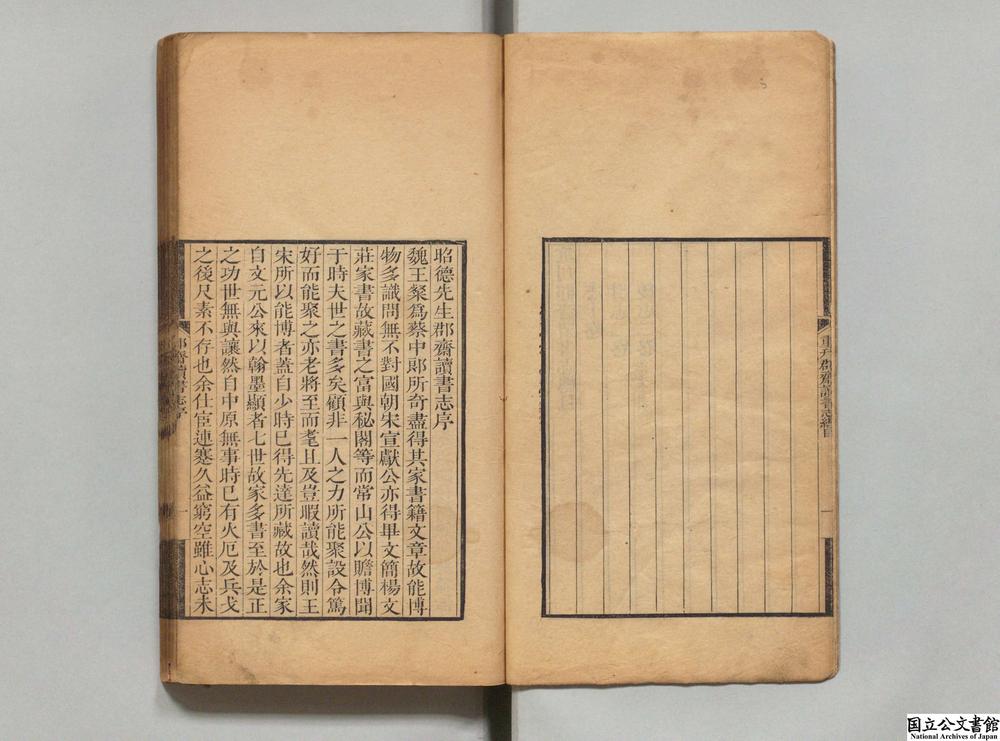 昭德先生郡齋讀書志序
魏王粲爲蔡中郎所奇盡得其家書籍文章故能博
物多識問無不對國朝宋宣獻公亦得畢文簡楊文
莊家書故藏書之富與秘閣等而常山公以贍博聞
于時夫世之書多矣顧非一人之力所能聚設令篤
好而能聚之亦老將至而耄且及豈暇讀哉然則王
宋所以能博者蓋自少時已得先達所藏故也余家
自文元公來以翰墨顯者七世故家多書至於是正
之功世無與讓然自中原無事時已有火厄及兵戈
之後尺素不存也余仕宦連蹇久益窮空雖心志未
郡齋讀書志序
一
郡齋讀書志總目
一
国立公文書館
National Archives of Japan